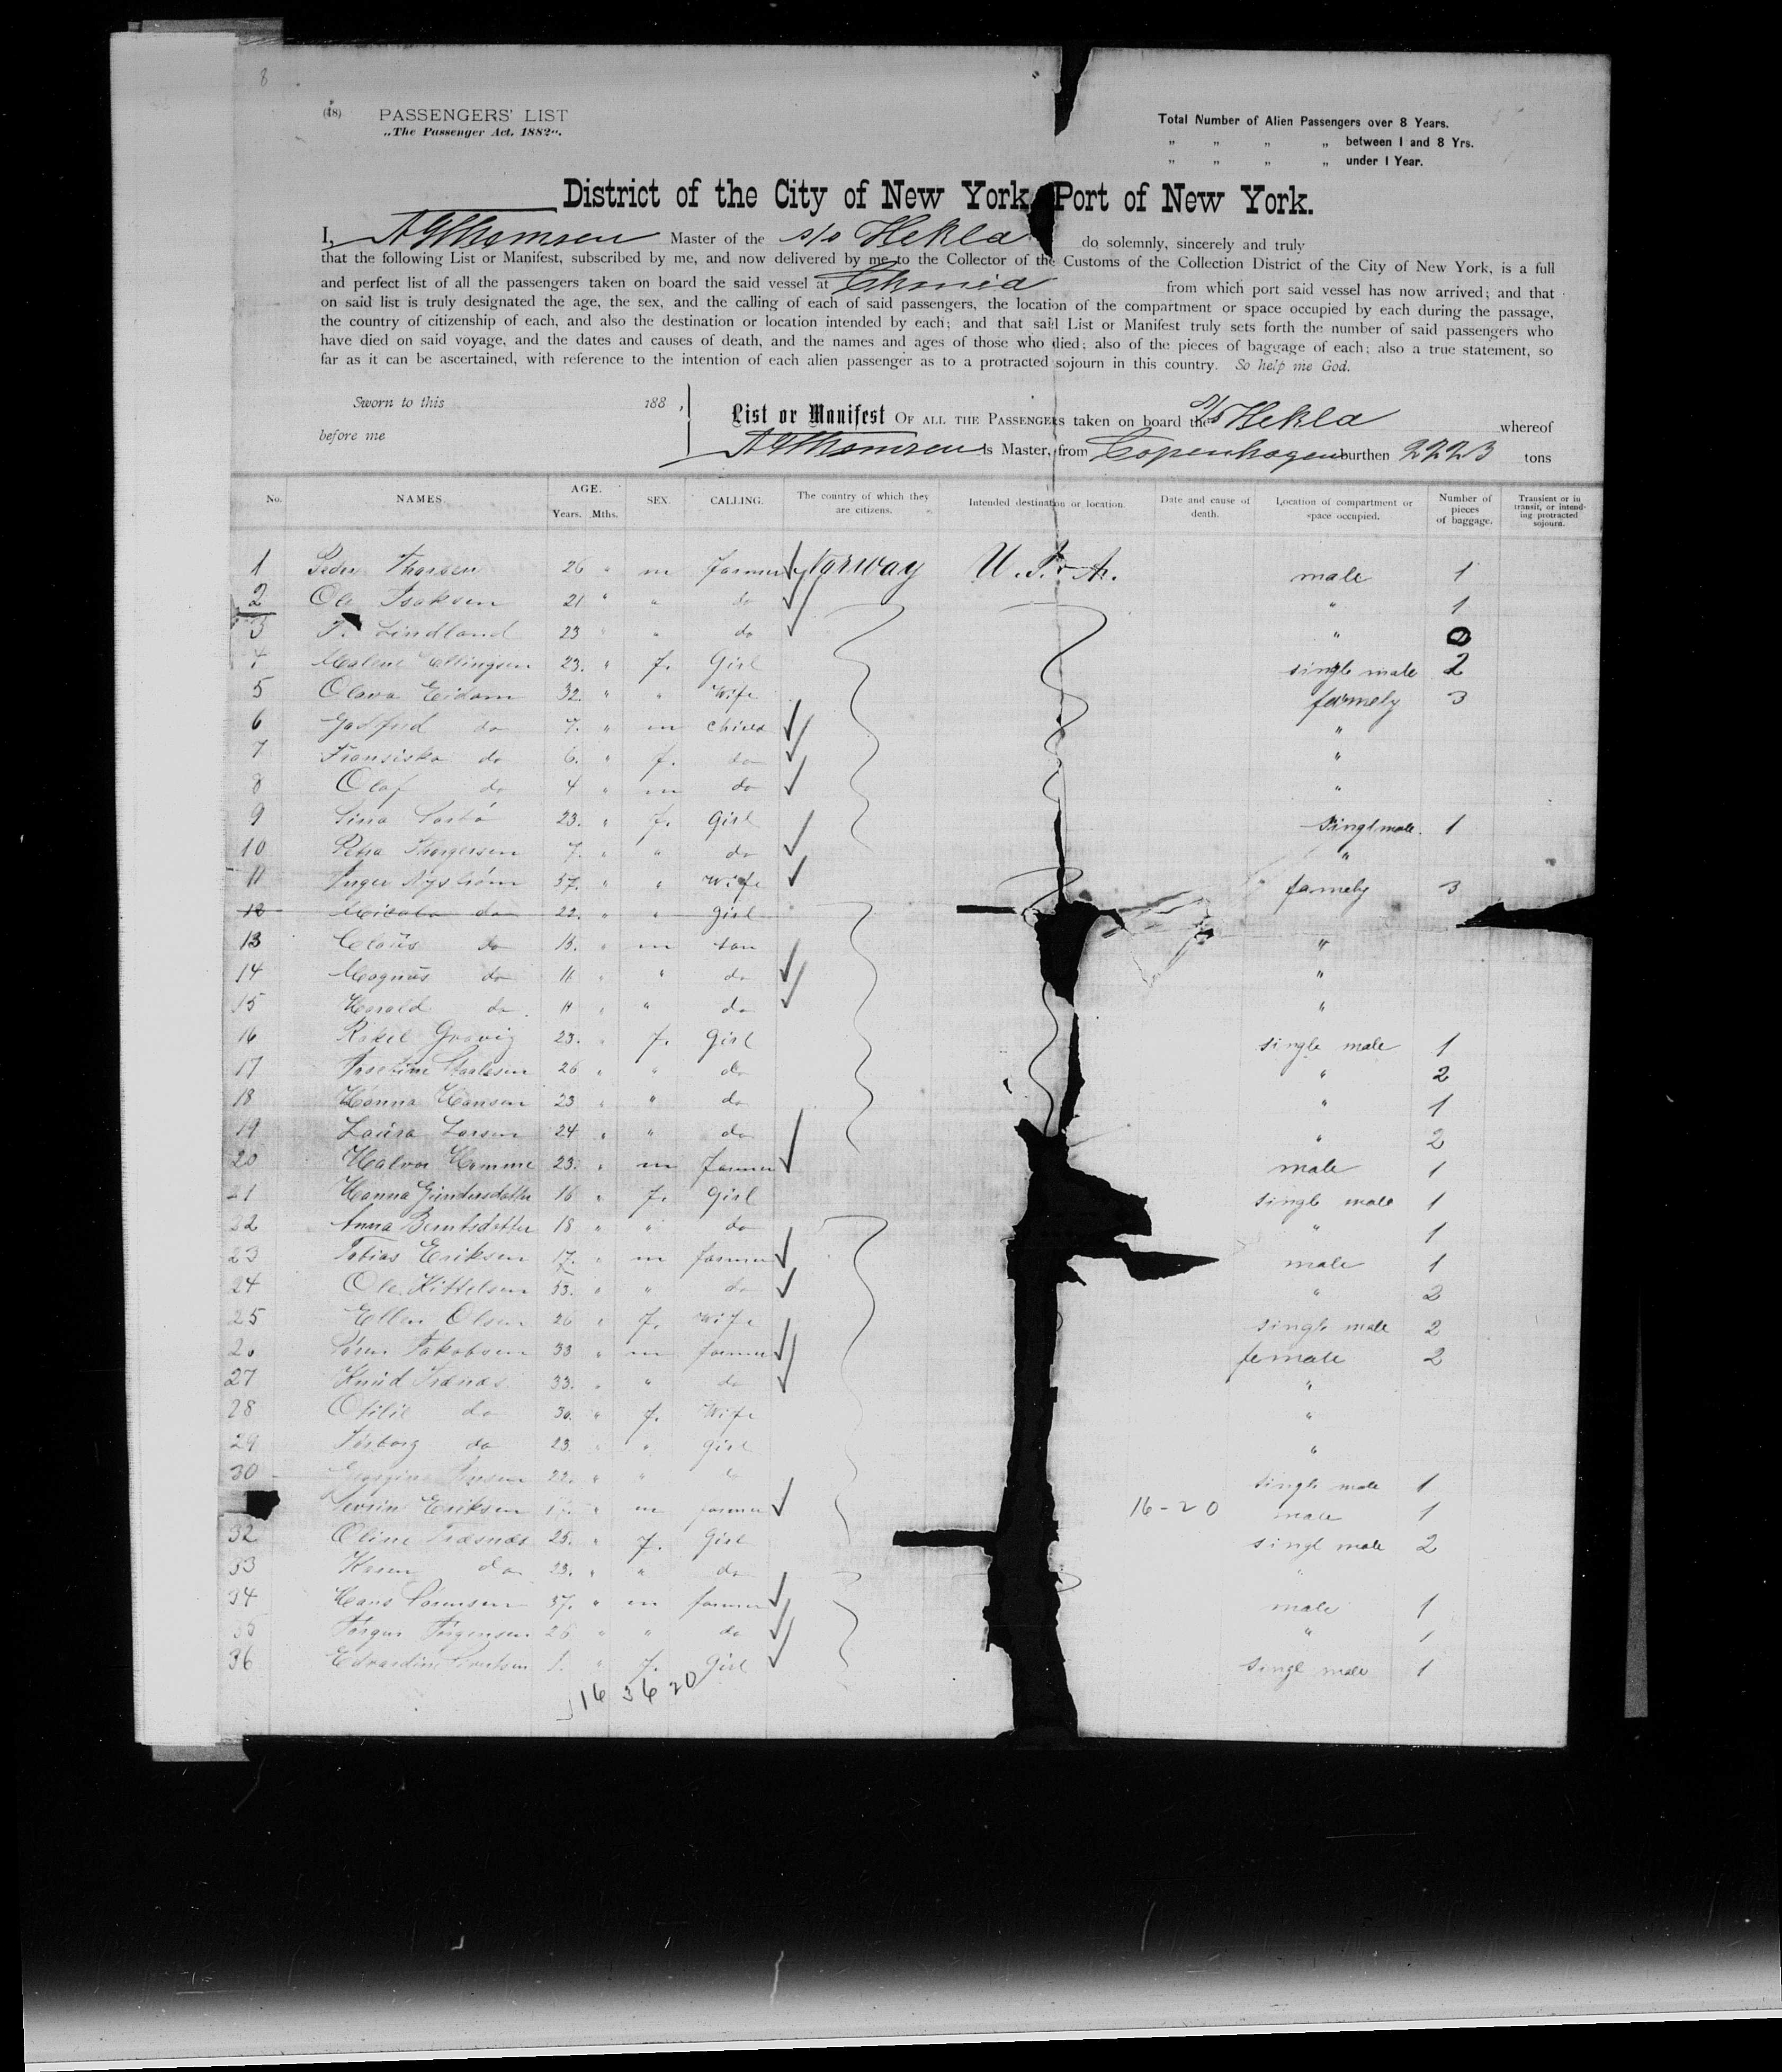 8
(18) PASSENGERS' LIST
„The Passenger Act, 1882“.
Total Number of Alien Passengers over 8 Years.
„ „ „ „ between 1 and 8 Yrs.
„ „ „ „ under 1 Year.
District of the City of New York, Port of New York.
I, Thomsen Master of the s/s Hekla do solemnly, sincerely and truly
that the following List or Manifest, subscribed by me, and now delivered by me to the Collector of the Customs of the Collection District of the City of New York, is a full
and perfect list of all the passengers taken on board the said vessel at from which port said vessel has now arrived; and that
on said list is truly designated the age, the sex, and the calling of each of said passengers, the location of the compartment or space occupied by each during the passage,
the country of citizenship of each, and also the destination or location intended by each; and that said List or Manifest truly sets forth the number of said passengers who
have died on said voyage, and the dates and causes of death, and the names and ages of those who died; also of the pieces of baggage of each; also a true statement, so
far as it can be ascertained, with reference to the intention of each alien passenger as to a protracted sojourn in this country. So help me God.
Sworn to this 188 ,
before me
List or Manifest OF ALL THE PASSENGERS taken on board the s/s Hekla whereof
Thomsen is Master, from Copenhagen burthen 2223 tons
No. NAMES. AGE. Years. Mths. SEX. CALLING. The country of which they are citizens. Intended destination or location. Date and cause of death. Location of compartment or space occupied. Number of pieces of baggage. Transient or in transit, or intending protracted sojourn.
1 Peder Thorsen 26 " m farmer Norway U.S.A. male 1
2 Ole Isaksen 21 " " do " 1
3 T. Lindland 23 " " do " 0
4 Malene Ellingsen 23. " f. Girl single male 2
5 Olava Eidam 32. " " Wife famely 3
6 do 7. " m child "
7 Fransiska do 6. " f. do "
8 Olaf do 4 " m do "
9 23. " f. Girl singl male. 1
10 Petra Thorgersen 7. " " do "
11 Inger Nyström 37. " " Wife famely 3
12 do 22. " " girl
13 Claüs do 15. " m son "
14 Magnus do 11 " " do "
15 Harald do 11 " " do "
16 Rakel 23. " f. Girl single male 1
17 26 " " do " 2
18 Hanna Hansen 23 " " do " 1
19 Laura Larsen 24 " " do " 2
20 Halvor Homme 23. " m farmer male 1
21 Hanna Gundersdatter 16 " f. Girl single male 1
22 Anna Berntsdatter 18 " " do " 1
23 Tobias Eriksen 17. " m farmer male 1
24 Ole Kittelsen 53. " " do " 2
25 Ellen Olsen 26 " f. Wife single male 2
26 Jakobsen 33 " m farmer female 2
27 Knud 33. " " do "
28 Otilie do 30. " f. Wife "
29 Torborg do 23. " " girl "
30 22. " " " single male 1
Eriksen " m farmer 16-20 male 1
32 Oline 25. " f. Girl singl male 2
33 Karen do 23. " " do "
34 Hans Sörensen 37. " m farmer male 1
35 Jörgensen 26 " " do " 1
36 " f. Girl singl male 1
16 36 20